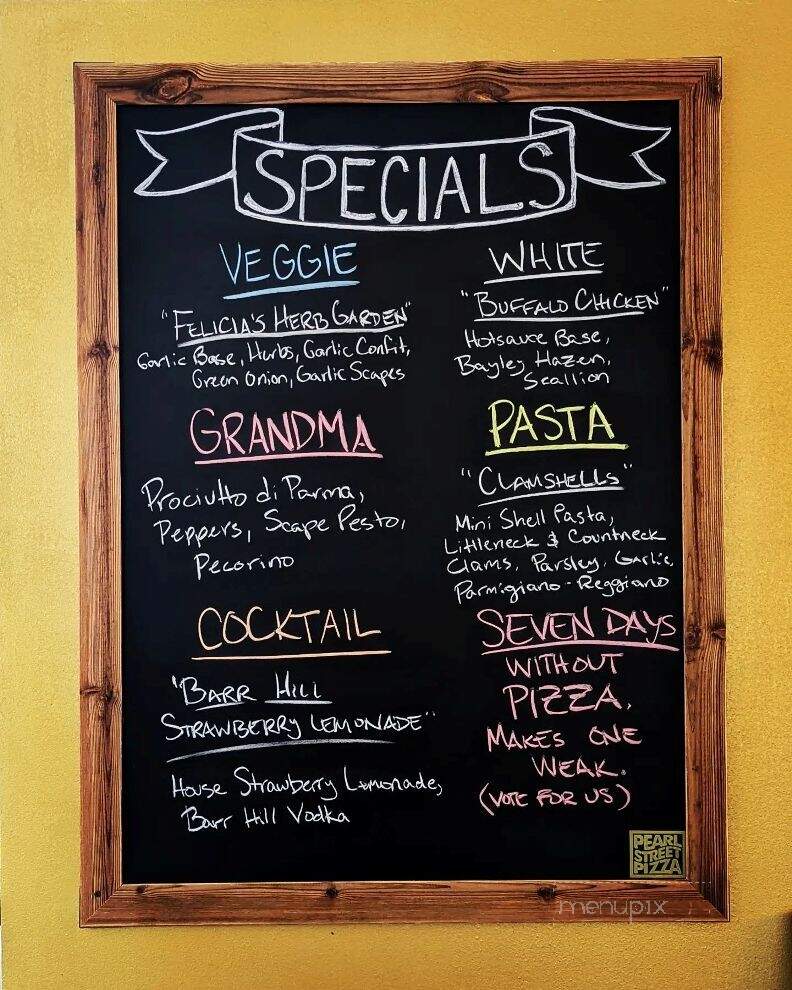 SPECIALS
VEGGIE
"FELICIA'S HERB GARDEN"
Garlic Base, Herbs, Garlic Confit,
Green Onion, Garlic Scapes
WHITE
"BUFFALO CHICKEN"
Hotsauce Base,
Bayley Hazen,
Scallion
GRANDMA
Prociutto di Parma,
Peppers, Scape Pesto,
Pecorino
PASTA
"CLAMSHELLS"
Mini Shell Pasta,
Littleneck & Countneck
Clams, Parsley, Garlic,
Parmigiano-Reggiano
COCKTAIL
"BARR HILL
STRAWBERRY LEMONADE"
House Strawberry Lemonade,
Barr Hill Vodka
SEVEN DAYS
WITHOUT
PIZZA,
MAKES ONE
WEAK.
(VOTE FOR US)
PEARL
STREET
PIZZA
menupix